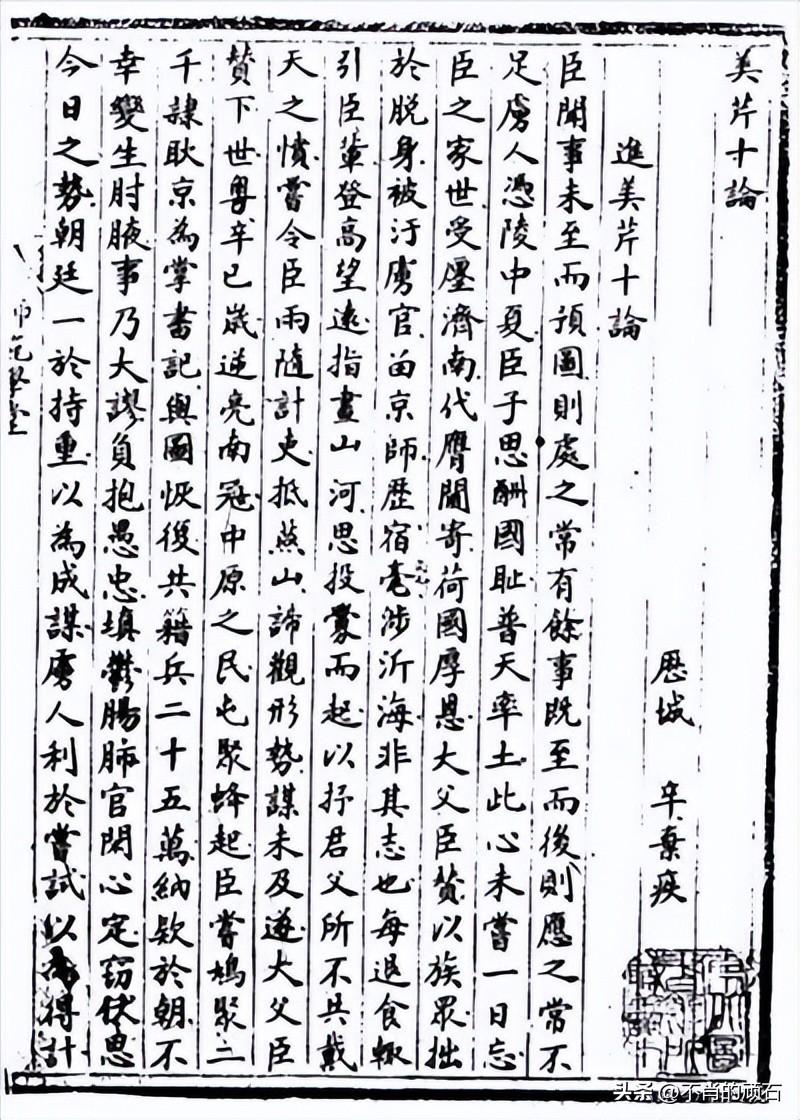 美芹十論
歴城 辛棄疾
進美芹十論
臣聞事未至而預圖則處之常有餘事既至而後則應之常不
足虜人憑陵中夏臣子思酬國耻普天率土此心未嘗一日忘
臣之家世受廛濟南代膺閫寄荷國厚恩大父臣贊以族眾拙
於脱身被汙虜官畄京師歷宿亳涉沂海非其志也每退食輒
引臣輩登高望遠指畫山河思投釁而起以抒君父所不共戴
天之憤嘗令臣兩隨計吏抵燕山諦觀形勢謀未及遂大父臣
贊下世粵辛已歲逆亮南冦中原之民屯聚蜂起臣嘗鳩聚二
千隷耿京為掌書記與圖恢復共籍兵二十五萬納欵於朝不
幸變生肘腋事乃大謬負抱愚忠填鬱腸肺官閑心定竊伏思
今日之勢朝廷一於持重以為成謀虜人利於嘗試以為得計
头条 @不肖的顽石